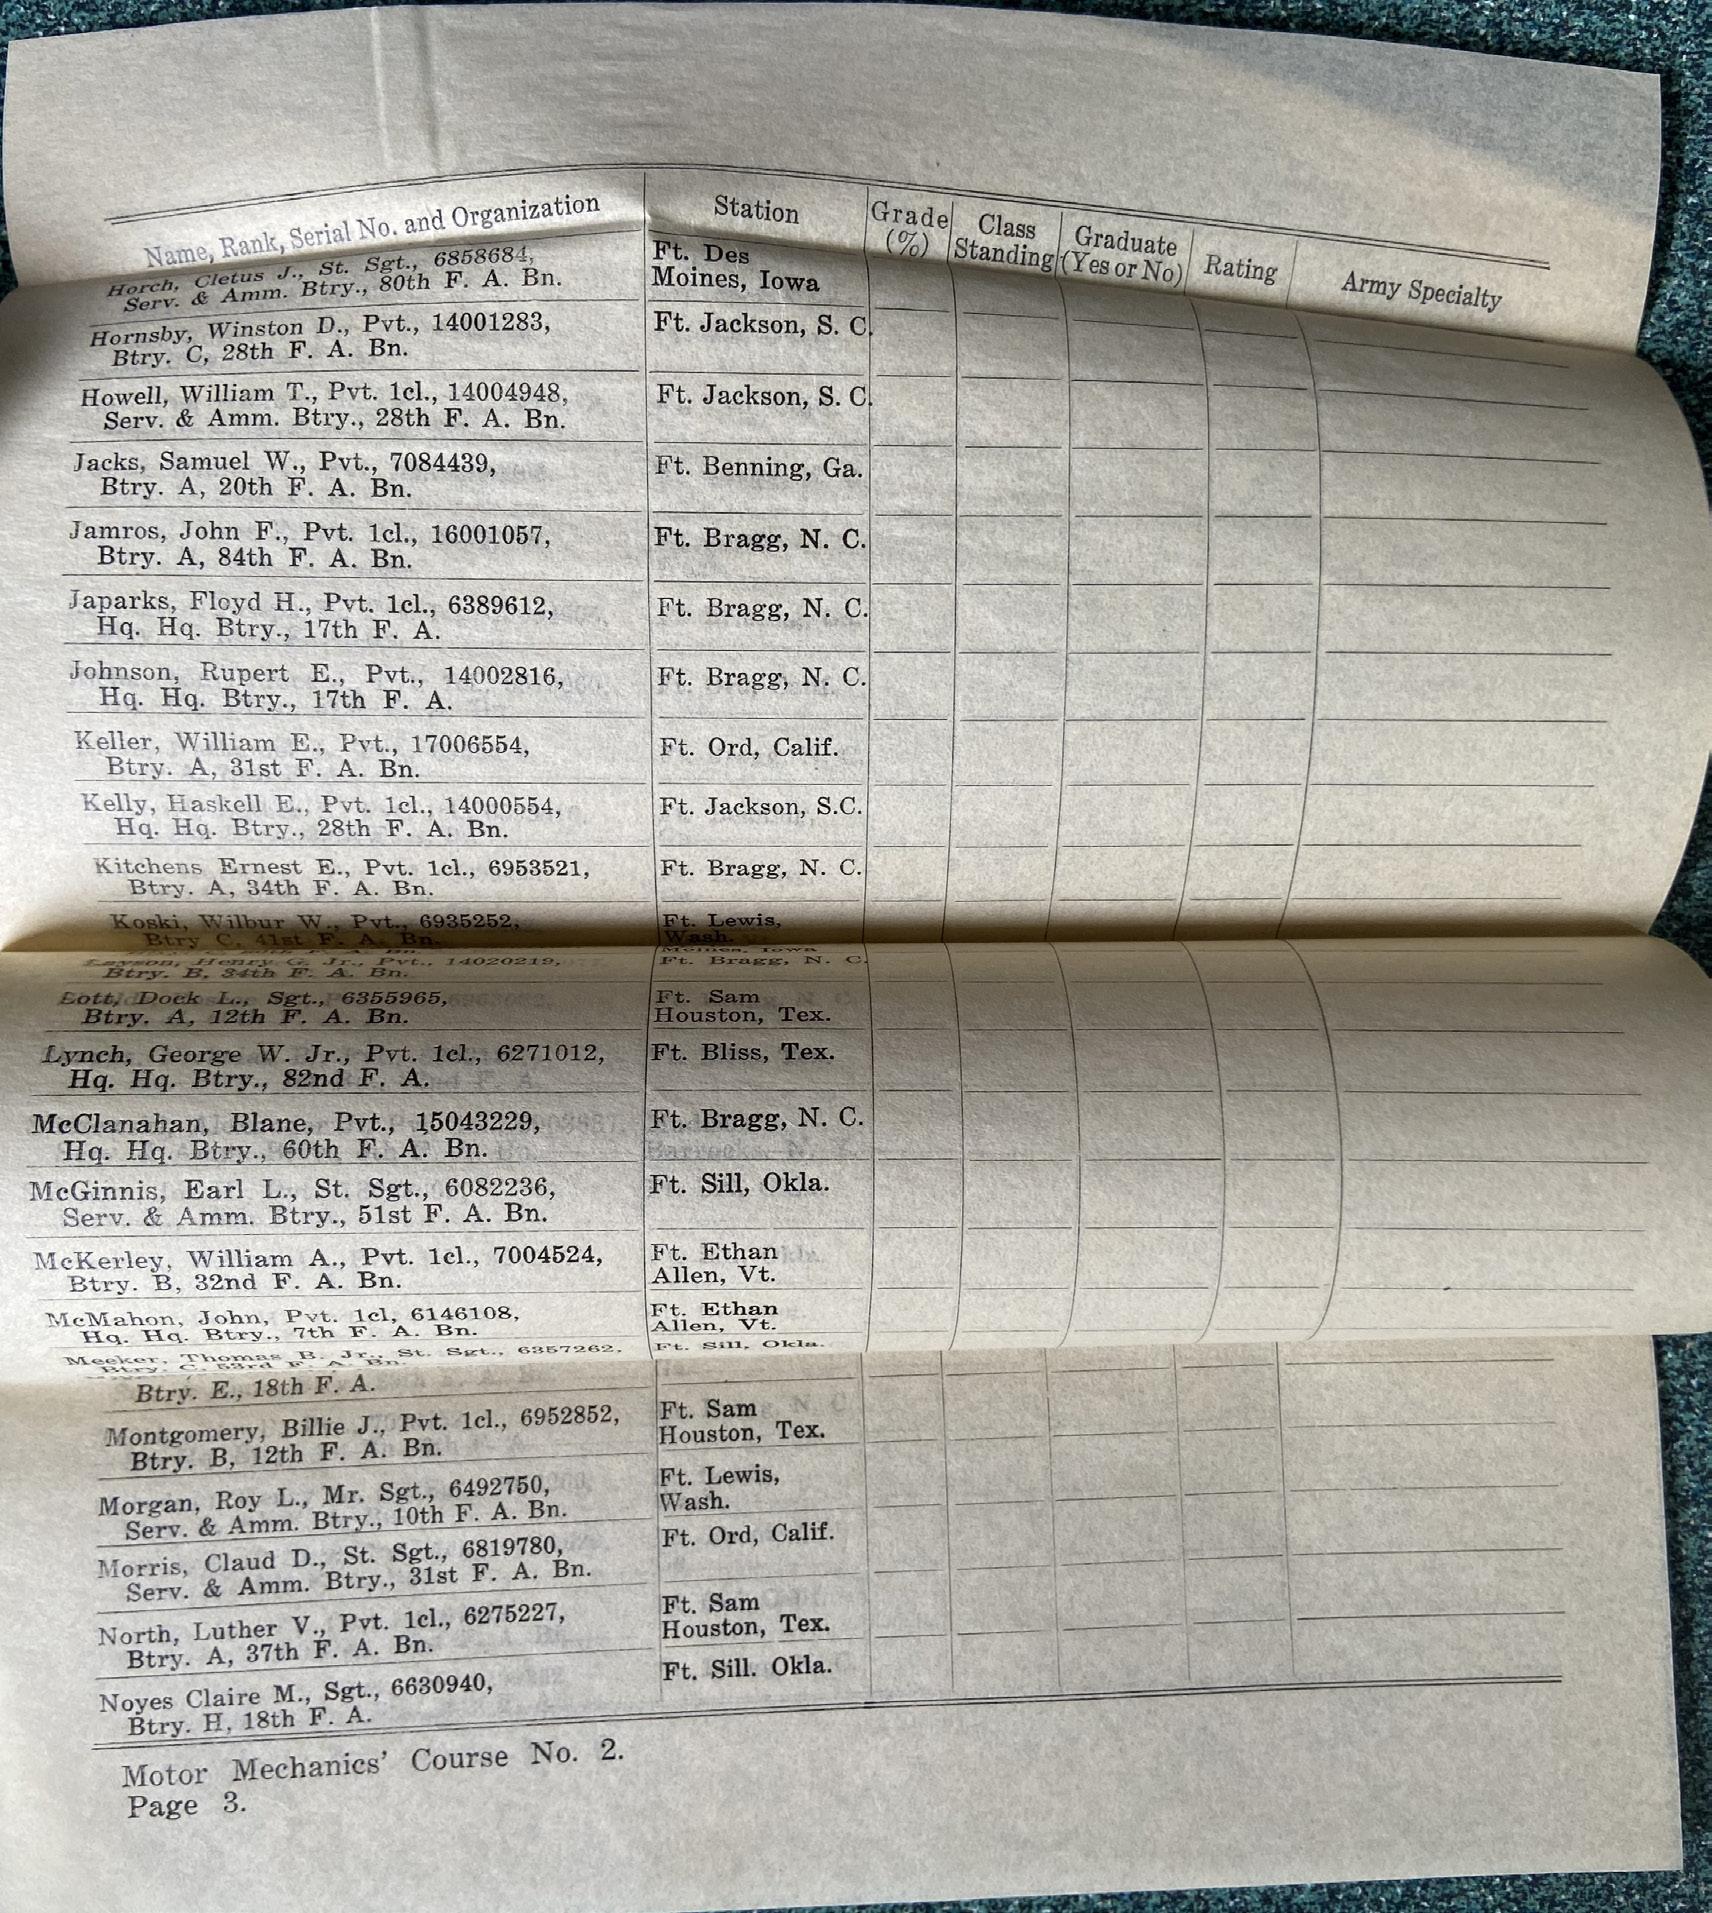 Name, Rank, Serial No. and Organization | Station | Grade (%) | Class Standing | Graduate (Yes or No) | Rating | Army Specialty
Horch, Cletus J., St. Sgt., 6858684, | Ft. Des
Serv. & Amm. Btry., 80th F. A. Bn. | Moines, Iowa
Hornsby, Winston D., Pvt., 14001283, | Ft. Jackson, S. C.
Btry. C, 28th F. A. Bn.
Howell, William T., Pvt. 1cl., 14004948, | Ft. Jackson, S. C.
Serv. & Amm. Btry., 28th F. A. Bn.
Jacks, Samuel W., Pvt., 7084439, | Ft. Benning, Ga.
Btry. A, 20th F. A. Bn.
Jamros, John F., Pvt. 1cl., 16001057, | Ft. Bragg, N. C.
Btry. A, 84th F. A. Bn.
Japarks, Floyd H., Pvt. 1cl., 6389612, | Ft. Bragg, N. C.
Hq. Hq. Btry., 17th F. A.
Johnson, Rupert E., Pvt., 14002816, | Ft. Bragg, N. C.
Hq. Hq. Btry., 17th F. A.
Keller, William E., Pvt., 17006554, | Ft. Ord, Calif.
Btry. A, 31st F. A. Bn.
Kelly, Haskell E., Pvt. 1cl., 14000554, | Ft. Jackson, S.C.
Hq. Hq. Btry., 28th F. A. Bn.
Kitchens Ernest E., Pvt. 1cl., 6953521, | Ft. Bragg, N. C.
Btry. A, 34th F. A. Bn.
Koski, Wilbur W., Pvt., 6935252, | Ft. Lewis,
Btry C, 41st F. A. Bn. | Wash.
Moines, Iowa
Henry G. Jr., Pvt., 14020219, | Ft. Bragg, N. C.
Btry. B, 34th F. A. Bn.
Lott, Dock L., Sgt., 6355965, | Ft. Sam
Btry. A, 12th F. A. Bn. | Houston, Tex.
Lynch, George W. Jr., Pvt. 1cl., 6271012, | Ft. Bliss, Tex.
Hq. Hq. Btry., 82nd F. A.
McClanahan, Blane, Pvt., 15043229, | Ft. Bragg, N. C.
Hq. Hq. Btry., 60th F. A. Bn.
McGinnis, Earl L., St. Sgt., 6082236, | Ft. Sill, Okla.
Serv. & Amm. Btry., 51st F. A. Bn.
McKerley, William A., Pvt. 1cl., 7004524, | Ft. Ethan
Btry. B, 32nd F. A. Bn. | Allen, Vt.
McMahon, John, Pvt. 1cl, 6146108, | Ft. Ethan
Hq. Hq. Btry., 7th F. A. Bn. | Allen, Vt.
Meeker, Thomas B. Jr., St. Sgt., 6357262, | Ft. Sill, Okla.
Btry. C, 53rd F. A. Bn.
Btry. E., 18th F. A.
Montgomery, Billie J., Pvt. 1cl., 6952852, | Ft. Sam
Btry. B, 12th F. A. Bn. | Houston, Tex.
Morgan, Roy L., Mr. Sgt., 6492750, | Ft. Lewis,
Serv. & Amm. Btry., 10th F. A. Bn. | Wash.
Morris, Claud D., St. Sgt., 6819780, | Ft. Ord, Calif.
Serv. & Amm. Btry., 31st F. A. Bn.
North, Luther V., Pvt. 1cl., 6275227, | Ft. Sam
Btry. A, 37th F. A. Bn. | Houston, Tex.
Noyes Claire M., Sgt., 6630940, | Ft. Sill. Okla.
Btry. H, 18th F. A.
Motor Mechanics' Course No. 2.
Page 3.